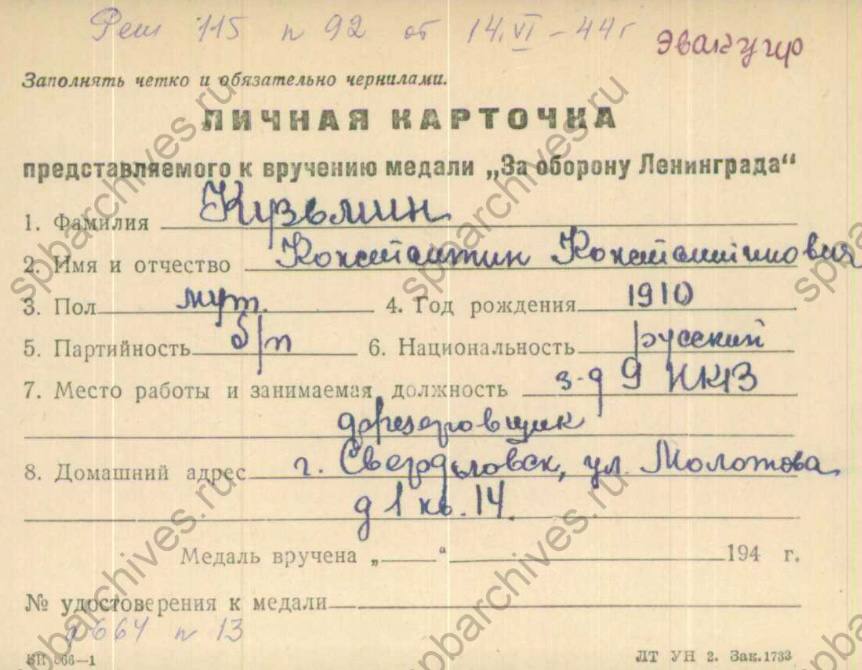 Реш 115 п 92 от 14.VI-44г
Эвакуир
Заполнять четко и обязательно чернилами.
ЛИЧНАЯ КАРТОЧКА
представляемого к вручению медали „За оборону Ленинграда“
1. Фамилия Кузьмин
2. Имя и отчество Константин Константинович
3. Пол муж. 4. Год рождения 1910
5. Партийность б/п 6. Национальность русский
7. Место работы и занимаемая должность з-д 9 НКВ
фрезеровщик
8. Домашний адрес г. Свердловск, ул. Молотова
д 1 кв. 14.
Медаль вручена „ “ 194 г.
№ удостоверения к медали
664 п 13
66—1
ЛТ УН 2. Зак.1733
spbarchives.ru